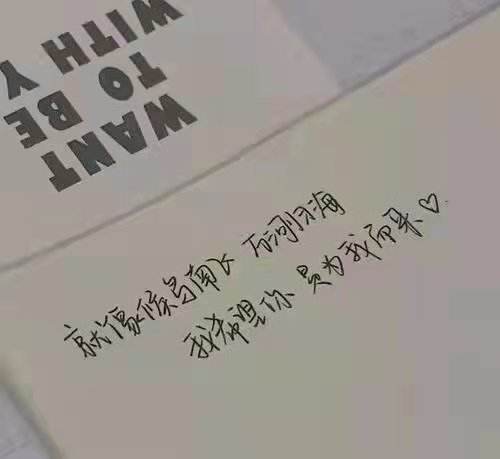 WANT
TO BE
WITH Y
就像候鸟南飞 归海
我希望你 是为我而来♡